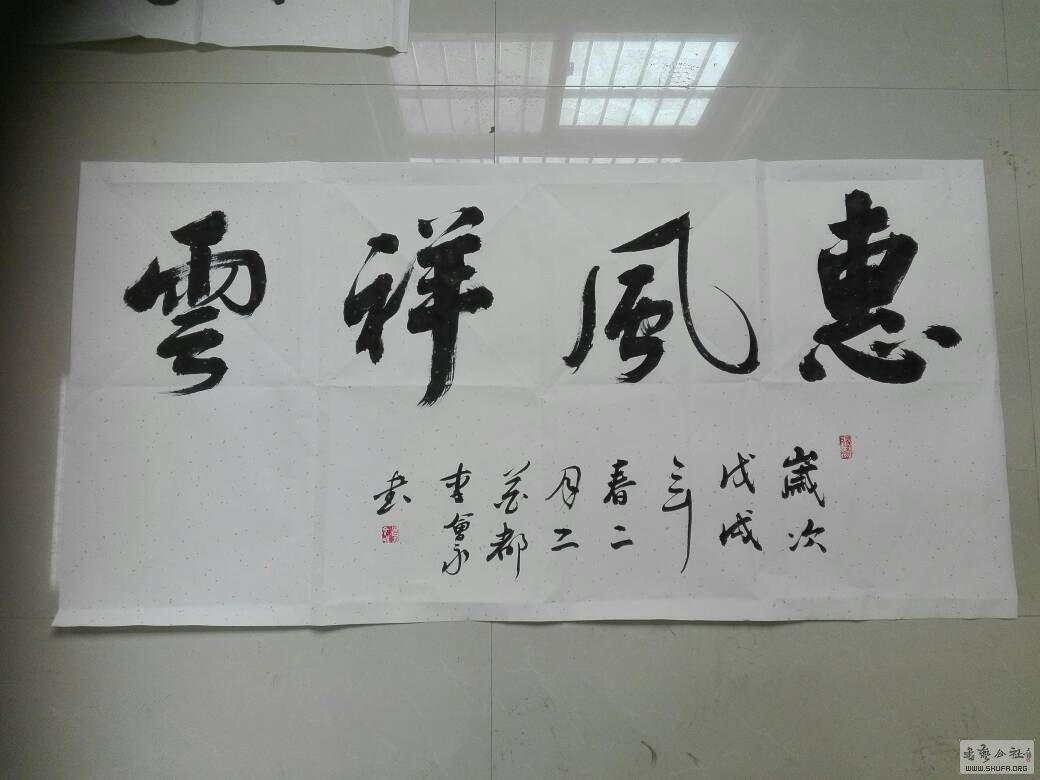 惠風祥雲
歲次
戊戌
年
春二
月二
都
李會永
書
書藝公社
WWW.SHUFA.ORG